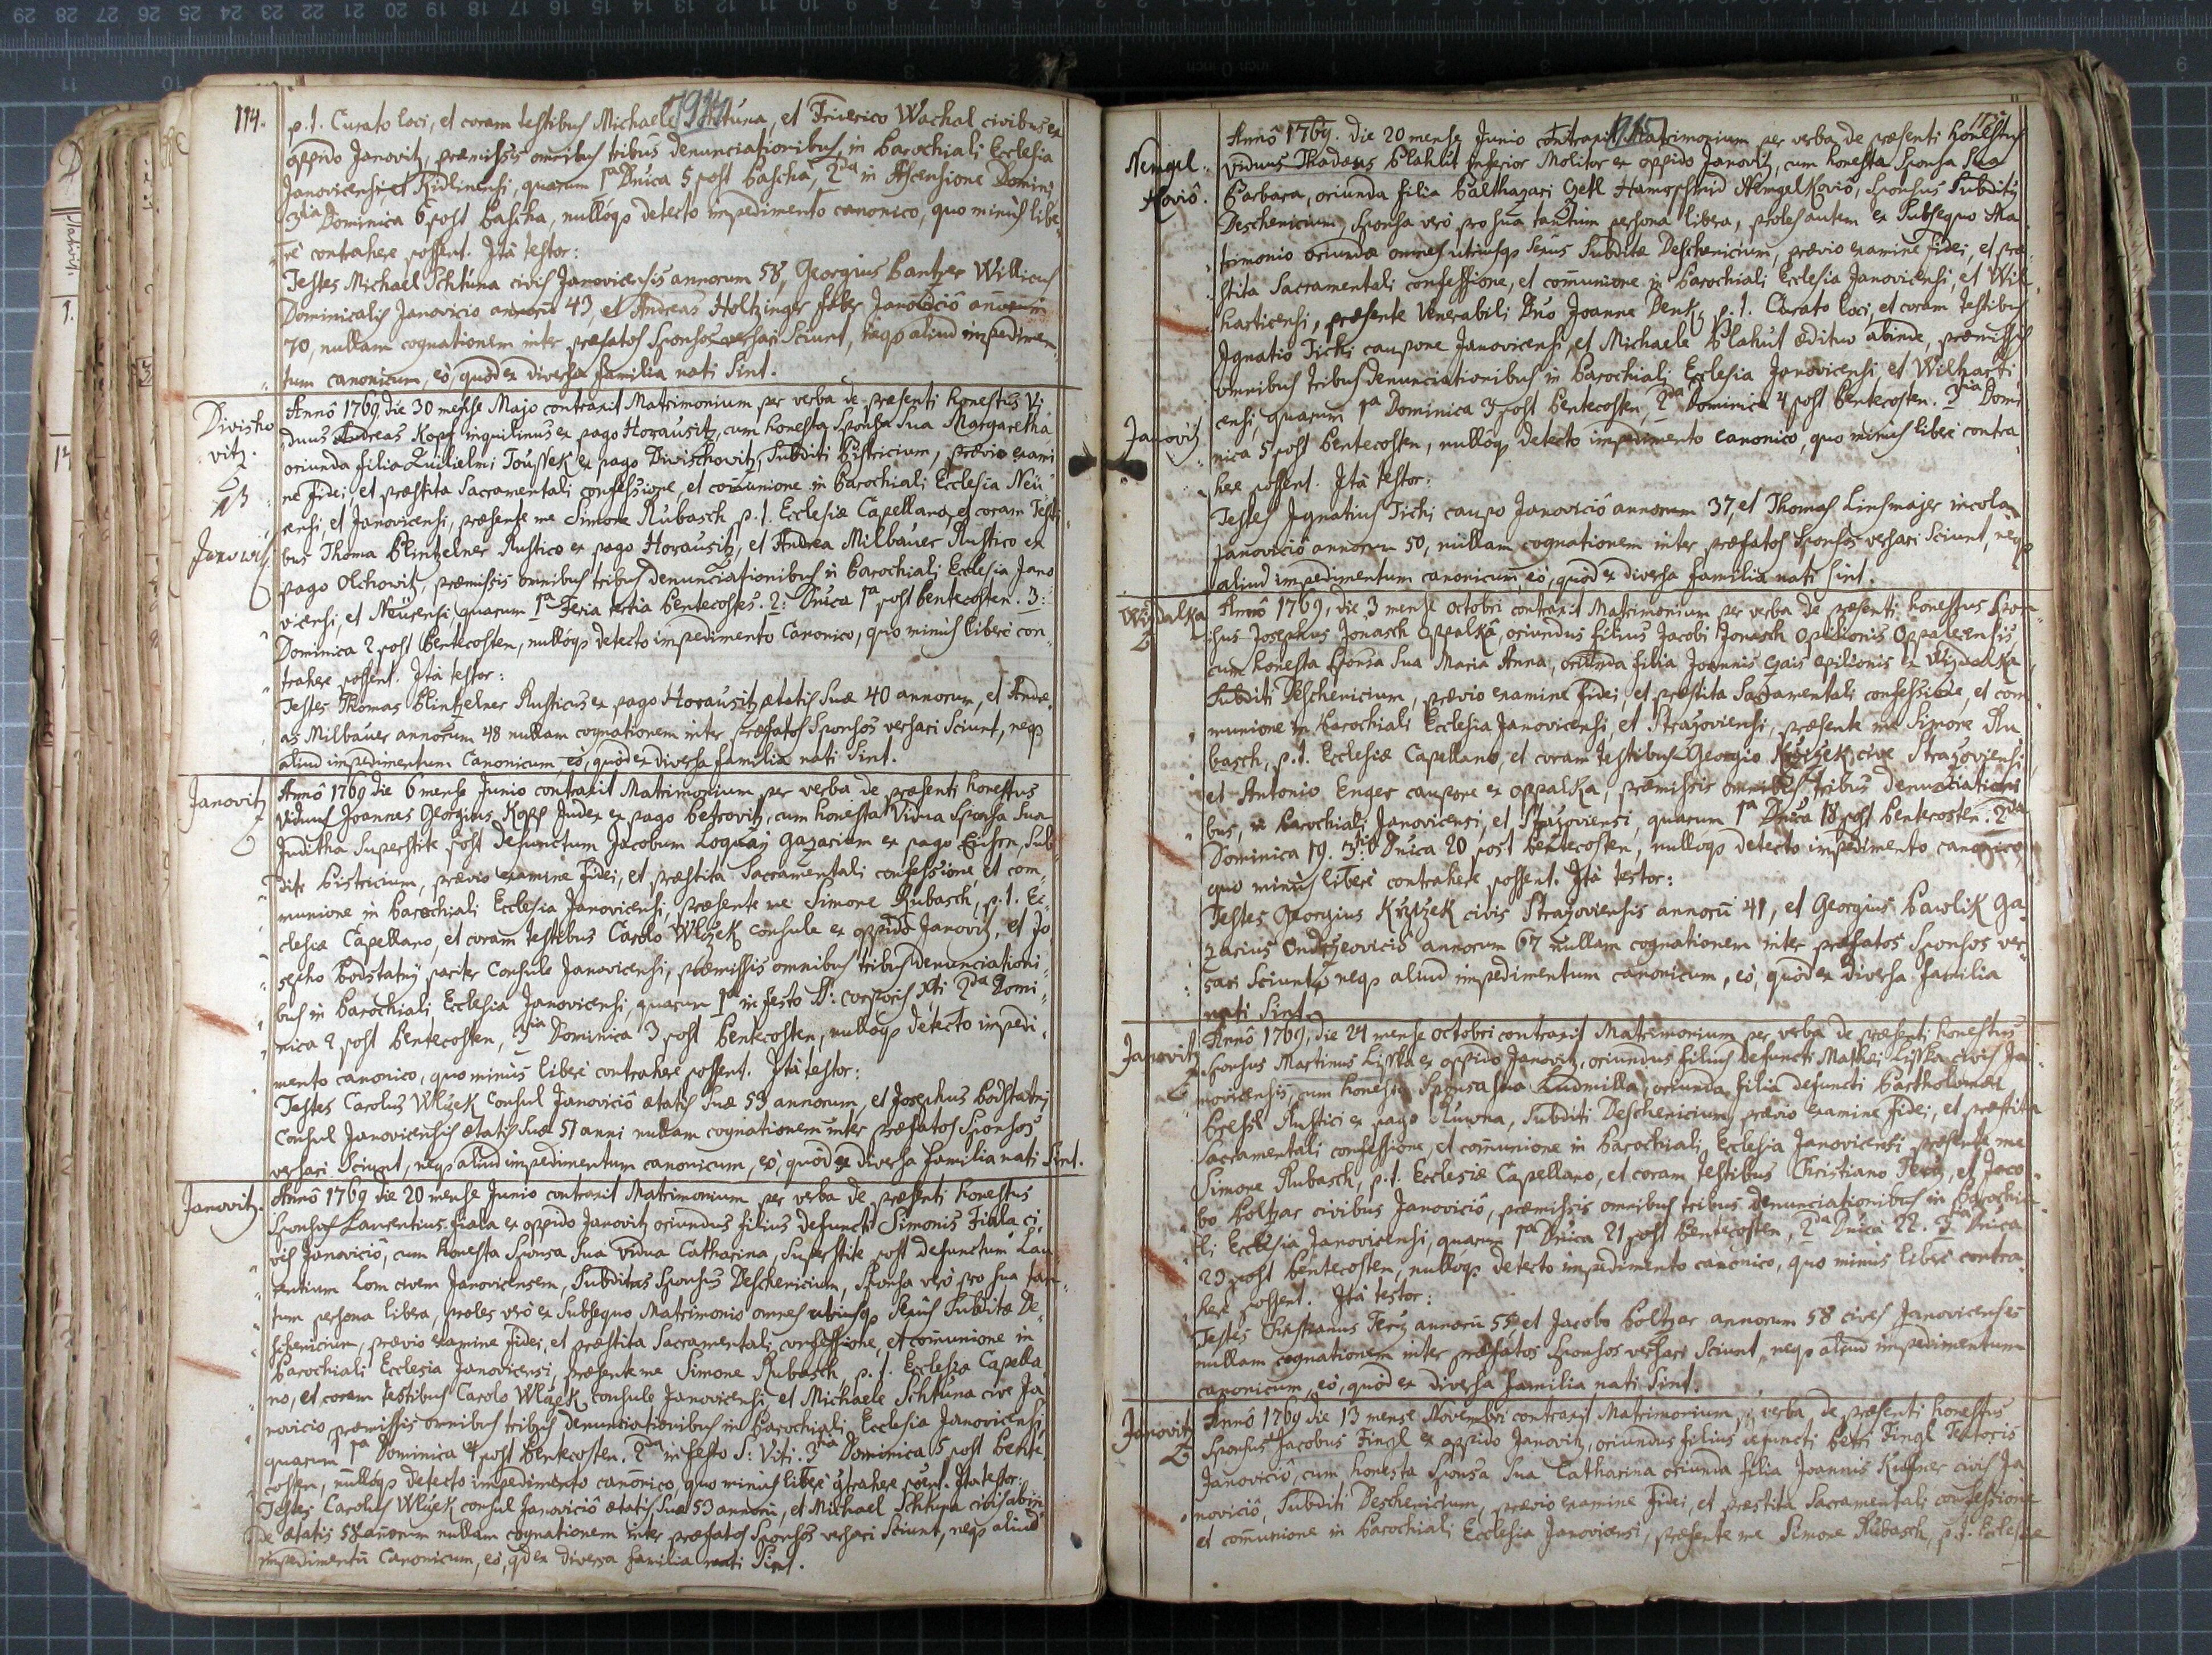 114.
p. t. Curato loci, et coram testibus Michaele Schtuna, et Friderico Wachal civibus ex
oppido Janovitz, præmissis omnibus tribus denunciationibus, in Parochiali Ecclesia
Janovicensi, et Kidlinensi, quarum 1ª Dnica 5 post Pascha, 2da in Ascensione Domini
3tia Dominica 6 post Pascha, nullóqp detecto impedimento canonico, quo minùs libe-
rè contrahere possent. Ità testor:
Testes Michael Schtuna civis Janovicensis annorum 58, Georgius Pantzer Willicus
Dominicalis Janovicio annorũ 43, et Andreas Holtzinger faber Janovicio annorum
70, nullam cognationem inter præfatos Sponsos versari Sciunt, neqp aliud impedimen-
tum canonicum, eò, quòd ex diversa familia nati Sint.
Divisko
vitz.
Anno 1769 die 30 mense Majo contraxit Matrimonium per verba de præsenti honestus Vi-
duus Andreas Kopf inquilinus ex pago Horausitz, cum honesta Sponsa Sua Margaretha
oriunda filia Quilielmi Toussek ex pago Divischovitz, Subditi Bistricium, prævio exami-
ne fidei, et præstita Sacramentali confessione, et com̃unione in Parochiali Ecclesia Neü-
Janovitz
rensi, et Janovicensi, præsente me Simone Rubasch p. t. Ecclesiæ Capellano, et coram Testi-
bus Thoma Plintzelner Rustico ex pago Horausitz, et Andrea Milbauer Rustico ex
pago Olchowitz, præmissis omnibus tribus denunciationibus in Parochiali Ecclesia Jano
vicensi, et Neürensi, quarum 1ª Feria tertia Pentecostes. 2: Dnica 1ª post Pentecosten. 3:
Dominica 2 post Pentecosten, nullóqp detecto impedimento Canonico, quo minùs liberè con-
trahere possent. Ità testor:
Testes Thomas Plintzelner Rusticus ex pago Horausitz ætatis Suæ 40 annorum, et Andre-
as Milbauer annorum 48 nullam cognationem inter præfatos Sponsos versari Sciunt, neqp
aliud impedimentum Canonicum, eò, quòd ex diversa familia nati Sint.
Janovitz
Anno 1769 die 6 mense Junio contraxit Matrimonium per verba de præsenti honestus
Viduus Joannes Georgius Kopf Judex ex pago Petrovitz, cum honesta Vidua Sponsa Sua
Juditha Superstite post defunctum Jacobum Loquay gazarium ex pago, Sub-
dite Bistricium, prævio examine fidei, et præstita Sacramentali confessione, et com-
munione in Parochiali Ecclesia Janovicensi, præsente me Simone Rubasch, p. t. Ec-
clesiæ Capellano, et coram testibus Carolo Wlček Consule ex oppido Janovitz, et Jo-
sepho Podstatny pariter Consule Janovicensi, præmissis omnibus tribus denunciationi-
bus in Parochiali Ecclesia Janovicensi, quarum 1ª in festo SS: Corporis Xti 2da Domi-
nica 2 post Pentecosten, 3tia Dominica 3 post Pentecosten, nullóqp detecto impedi-
mento canonico, quo minùs liberè contrahere possent. Ità testor:
Testes Carolus Wlček Consul Janovicio ætatis Suæ 53 annorum, et Josephus Podstatni
Consul Janovicensis ætatis Suæ 51 anni nullam cognationem inter præfatos Sponsos
versari Sciunt, neqp aliud impedimentum canonicum, eò, quòd ex diversa familia nati Sint.
Janovitz.
Anno 1769 die 20 mense Junio contraxit Matrimonium per verba de præsenti honestus
Sponsus Laurentius Fiala ex oppido Janovitz oriundus filius defuncti Simonis Fiala ci-
vis Janovicio, cum honesta Sponsa Sua vidua Catharina, Superstite post defunctum Lau-
rentium Lom civem Janovicensem, Subditus Sponsus Deschenicium, Sponsa verò pro Sua tan-
tum persona libera, proles verò ex Subsequo Matrimonio omnes utriusqp Sexùs Subditæ De-
schenicium, prævio examine fidei, et præstita Sacramentali confessione, et com̃unione in
Parochiali Ecclesia Janovicensi, præsente me Simone Rubasch, p. t. Ecclesiæ Capella-
no, et coram testibus Carolo Wlček consule Janovicensi, et Michaele Schtuna cive Ja-
novicio præmissis omnibus tribus denunciationibus in Parochiali Ecclesia Janovicensi,
quarum 1ª Dominica 4 post Pentecosten. 2da in festo S: Viti. 3tia Dominica 5 post Pente-
costen, nullóqp detecto impedimento canonico, quo minùs liberè contrahere possent. Ita testor:
Testes Carolus Wlček consul Janovicio ætatis Suæ 53 annorũ, et Michael Schtuna civis abin-
de ætatis 58 annorum nullam cognationem inter præfatos Sponsos versari Sciunt, neqp aliud
impedimentũ Canonicum, eò, qd ex diversa familia nati Sint.
Nemgel-
Kovio.
Anno 1769. die 20 mense Junio contraxit Matrimonium per verba de præsenti honestus
viduus Thadæus Blahut inferior Molitor ex oppido Janovitz, cum honesta Sponsa Sua
Barbara, oriunda filia Balthazari Getl Hamrschmid Nemgelkovio, Sponsus Subditus
Deschenicium, Sponsa verò pro sua tantum persona libera, proles autem ex Subsequo Ma-
trimonio oriundæ omnes utriusqp sexus Subditæ Deschenicium, prævio examine fidei, et præ-
stita Sacramentali confessione, et com̃unione in Parochiali Ecclesia Janovicensi, et Wil-
harticensi, præsente Venerabili Dno Joanne Denk, p. t. Curato loci, et coram testibus
Ignatio Tichi caupone Janovicensi, et Michaele Blahut ædituo abinde, præmissis
omnibus tribus denunciationibus in Parochiali Ecclesia Janovicensi et Wilharti-
Janovitz
censi, quarum 1ª Dominica 3 post Pentecosten, 2da Dominica 4 post Pentecosten. 3tia Domi-
nica 5 post Pentecosten, nullóqp detecto impedimento canonico, quo minùs liberè contra-
here possent. Ità testor:
Testes Ignatius Tichi caupo Janovicio annorum 37, et Thomas Linsmajer incola
Janovicio annorum 50, nullam cognationem inter præfatos Sponsos versari Sciunt, neqp
aliud impedimentum canonicum eò, quòd ex diversa familia nati Sint.
Wizdalka
Anno 1769, die 3 mense Octobri contraxit Matrimonium per verba de præsenti honestus Spon-
sus Josephus Jonasch Oppalka, oriundus filius Jacobi Jonasch Opilionis Oppalecensis
cum honesta Sponsa Sua Maria Anna, oriunda filia Joannis Gais opilionis ex Wizdalka
Subditi Deschenicium, prævio examine fidei, et præstita Sacramentali confessione, et com-
munione in Parochiali Ecclesia Janovicensi, et Strazoviensi, præsente me Simone Ru-
basch, p. t. Ecclesiæ Capellano, et coram testibus Georgio Křižek cive Strazoviensi,
et Antonio Enger caupone ex Oppalka, præmissis omnibus tribus denunciationi-
bus, in Parochiali Janovicensi, et Strazoviensi, quarum 1ª Dnica 18 post Pentecosten. 2da
Dominica 19. 3tia Dnica 20 post Pentecosten, nullóqp detecto impedimento canonico,
quo minùs liberè contrahere possent. Ità testor:
Testes Georgius Křizek civis Strazoviensis annorũ 41, et Georgius Pawlik ga-
zarius Ondrzeovicio annorum 67 nullam cognationem inter præfatos Sponsos ver-
sari Sciunt, neqp aliud impedimentum canonicum, eò, quòd ex diversa familia
nati Sint.
Janovitz
Anno 1769, die 24 mense Octobri contraxit Matrimonium per verba de præsenti honestus
Sponsus Martinus Lisska ex oppido Janovitz, oriundus filius defuncti Mathæi Lisska civis Ja-
novicensis, cum honesta Sponsa Sua Ludmilla, oriunda filia defuncti Bartholomæi
Rustici ex pago, Subditi Deschenicium, prævio examine fidei, et præstita
Sacramentali confessione, et com̃unione in Parochiali Ecclesia Janovicensi præsente me
Simone Rubasch, p. t. Ecclesiæ Capellano, et coram testibus Christiano Fertz, et Jaco-
bo Poltzar civibus Janovicio, præmissis omnibus tribus denunciationibus in Parochia-
li Ecclesia Janovicensi, quarum 1ª Dnica 21 post Pentecosten, 2da Dnica 22. 3tia Dnica
23 post Pentecosten, nullóqp detecto impedimento canonico, quo minùs liberè contra-
here possent. Ità testor:
Testes Christianus Fertz annorũ 55 et Jacobo Poltzer annorum 58 cives Janovicenses
nullam cognationem inter præfatos Sponsos versari Sciunt, neqp aliud impedimentum
canonicum, eò, quòd ex diversa familia nati Sint.
Janovitz
Anno 1769 die 13 mense Novembri contraxit Matrimonium, p verba de præsenti honestus
Sponsus Jacobus Fingl ex oppido Janovitz, oriundus filius defuncti Petri Fingl Textoris
Janovicio, cum honesta Sponsa Sua Catharina oriunda filia Joannis civis Ja-
novicio, Subditi Deschenicium, prævio examine fidei, et præstita Sacramentali confessione
et com̃unione in Parochiali Ecclesia Janovicensi, præsente me Simone Rubasch, p. t. Ecclesiæ